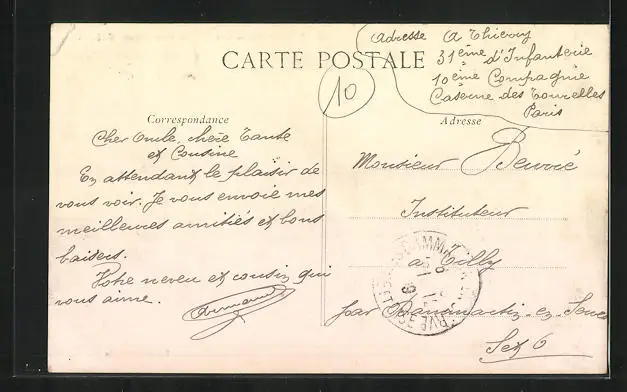 CARTE POSTALE
Adresse A Thierry
31ème d'Infanterie
10ème Compagnie
Caserne des Tourelles
Paris
10
Correspondance
Cher Oncle, chère Tante
et Cousine
En attendant le plaisir de
vous voir. Je vous envoie mes
meilleures amitiés et bons
baisers.
Votre neveu et cousin qui
vous aime.
Armand
Adresse
Monsieur
Instituteur
a Tilly
par en
S et O